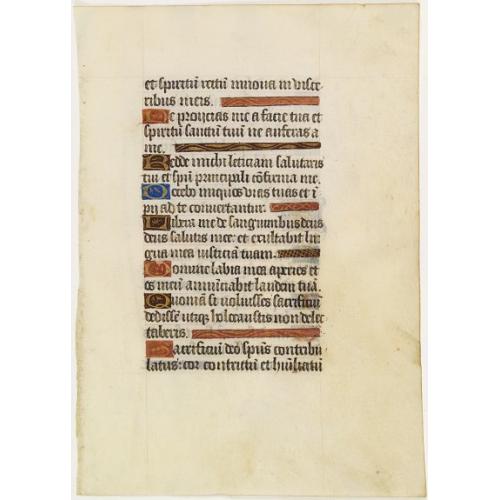 et spiritū rectū innova in visce
ribus meis.
Ne proijcias me a facie tua et
spiritū sanctū tuū ne auferas a
me.
Redde michi leticiam salutaris
tui et spū principali cōfirma me.
Docebo iniquos vias tuas et ī
pij ad te convertantur.
Libera me de sanguinibus deus
deus salutis mee: et exultabit lin
gua mea iusticiā tuam.
Domine labia mea aperies et
os meū annūciabit laudem tuā.
Quoniā si voluisses sacrificiū
dedissē utiqꝫ holocaustis non delec
taberis.
Sacrificiū deo spūs contribu
latus: cor contritū et hūiliatū